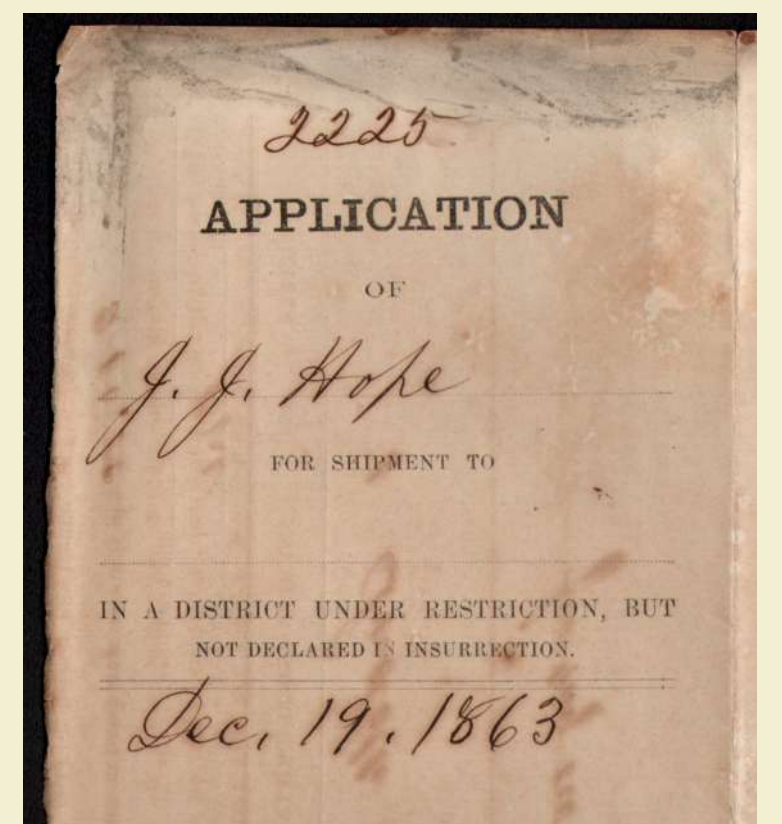 2225
APPLICATION
OF
J. J. Hope
FOR SHIPMENT TO
IN A DISTRICT UNDER RESTRICTION, BUT
NOT DECLARED IN INSURRECTION.
Dec. 19. 1863